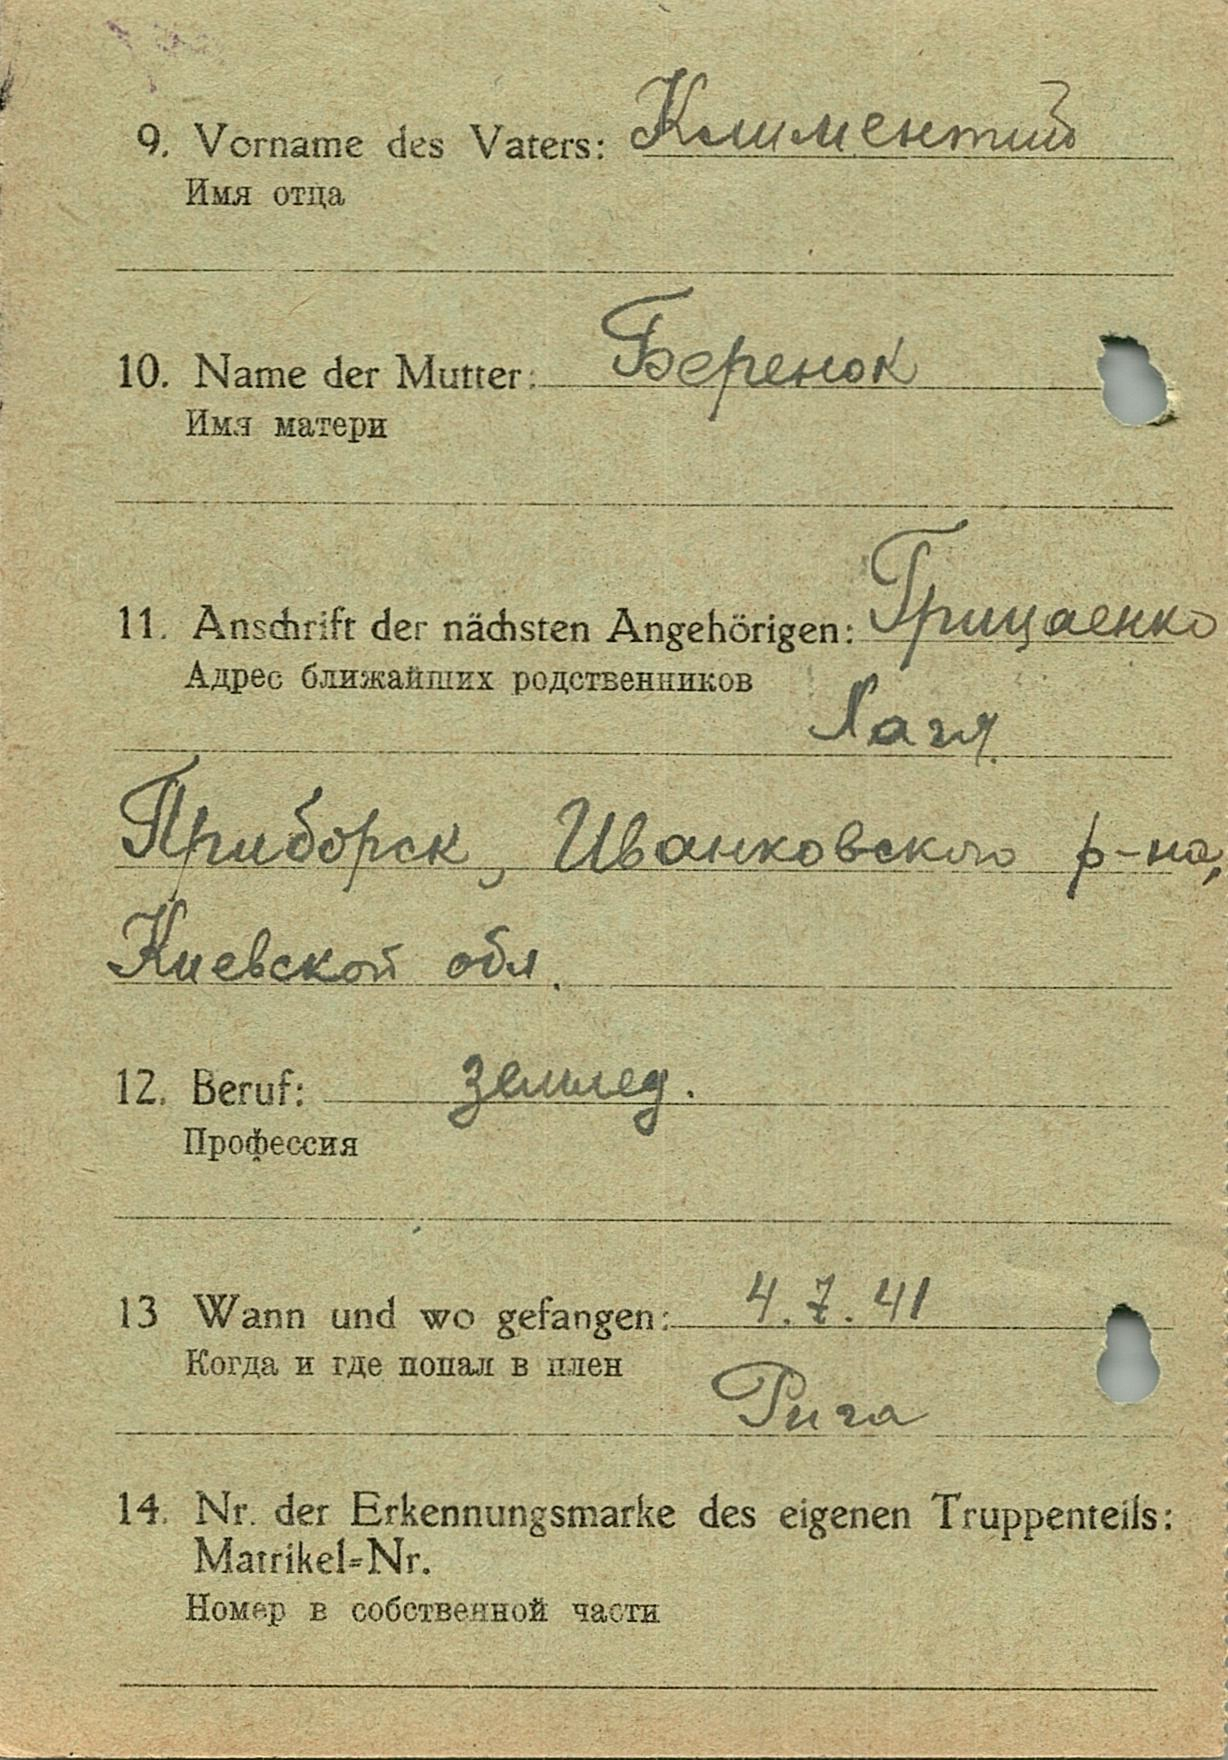 9. Vorname des Vaters: Климентий
Имя отца
10. Name der Mutter: Беренок
Имя матери
11. Anschrift der nächsten Angehörigen: Грицаенко
Адрес ближайших родственников
Приборск, Иванковского р-на,
Киевской обл.
12. Beruf: землед.
Профессия
13 Wann und wo gefangen: 4.7.41
Когда и где попал в плен
Рига
14. Nr. der Erkennungsmarke des eigenen Truppenteils:
Matrikel=Nr.
Номер в собственной части